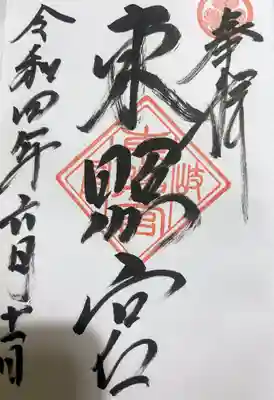 奉拝
東照宮
令和四年六月十一日